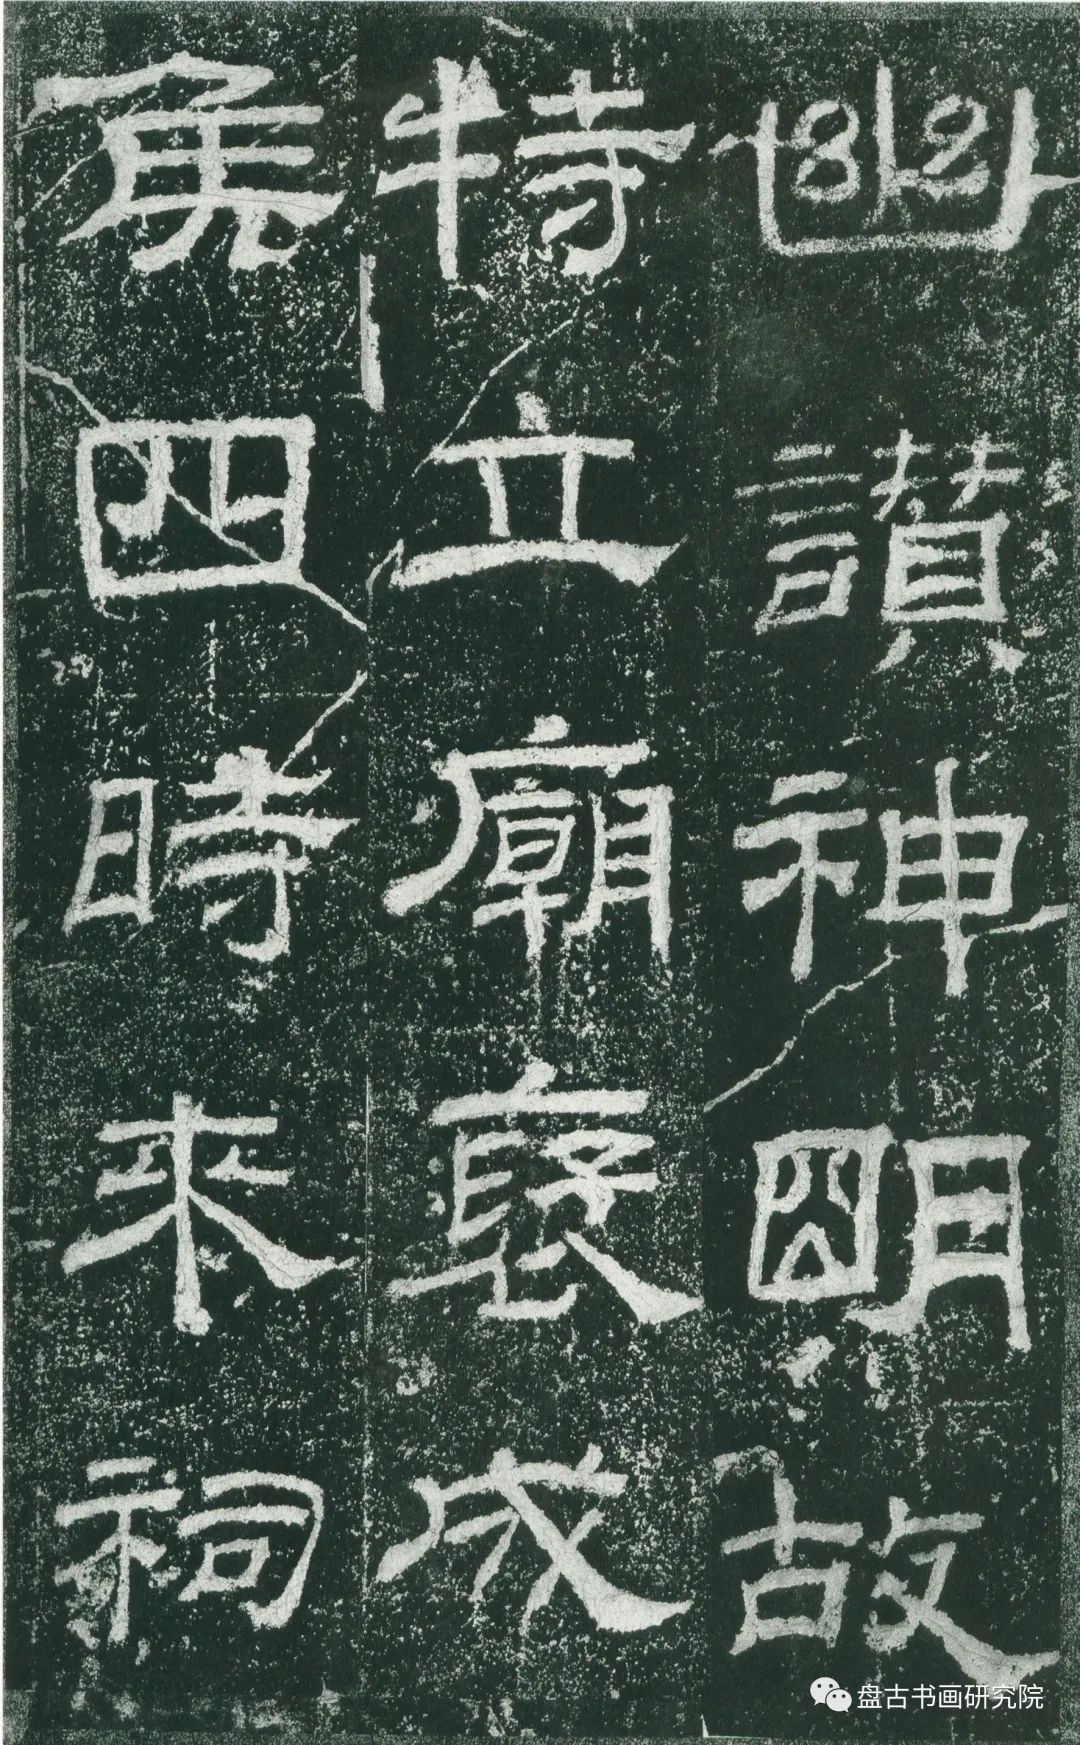 幽讚神明故
特立廟褒成
侯四時來祠
盘古书画研究院